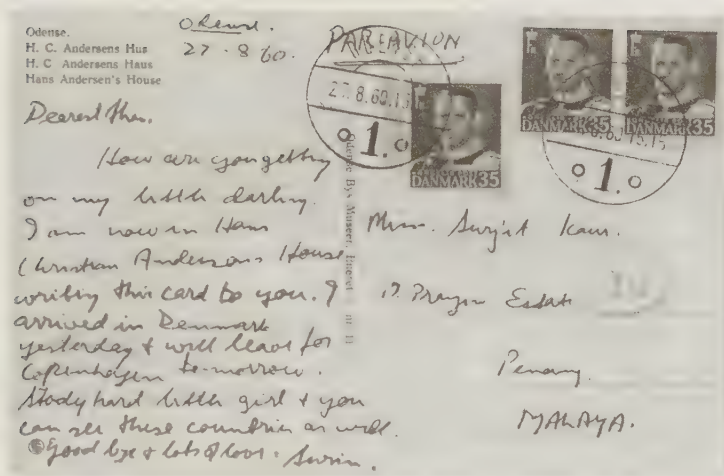 Odense.
H. C. Andersens Hus
H. C Andersens Haus
Hans Andersen's House
Odense.
27 . 8 60.
PAR AVION
27.8.60.15
1.
DANMARK 35
DANMARK 35
DANMARK 35
1.
Dearest
How are you getting
on my little darling.
I am now in Hans
Christian Andersons House
writing this card to you. I
arrived in Denmark
yesterday & will leave for
Copenhagen to-morrow.
Study hard little girl & you
can see these countries as well.
Good bye & lots of love.
Odense Bys Museer.
Miss. Surjit Kaur.
Estate
Penang.
MALAYA.